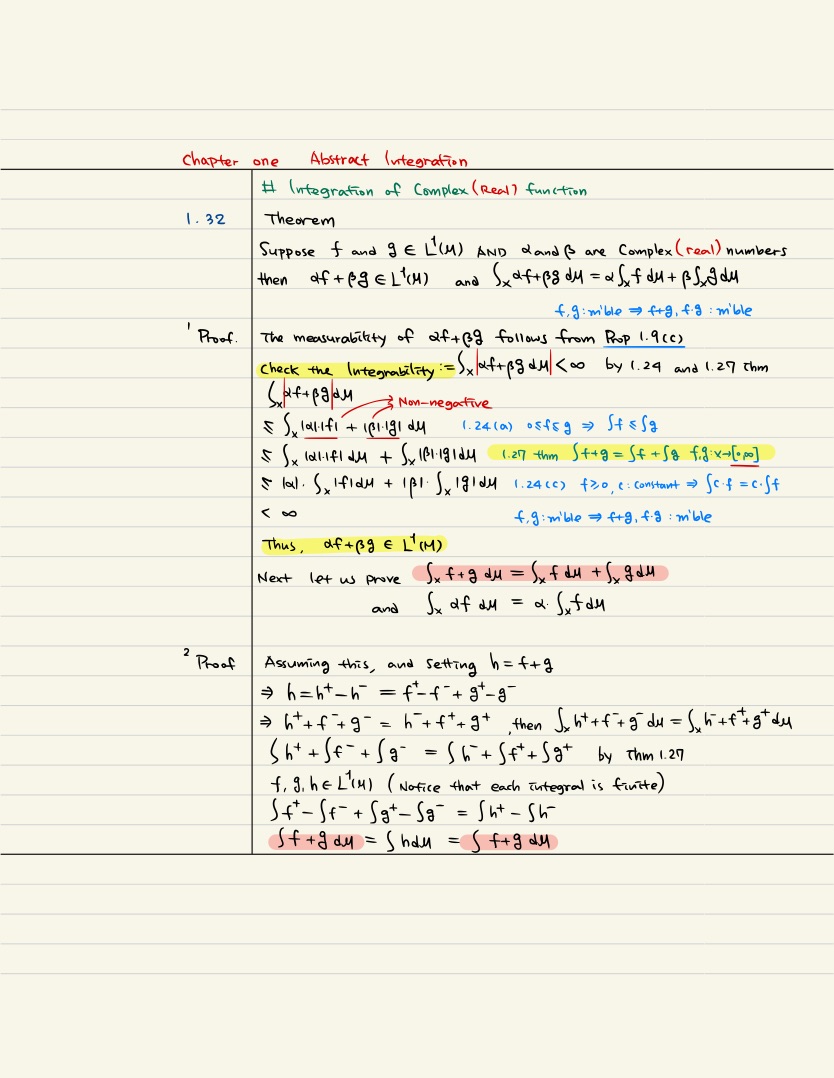 Chapter one Abstract Integration
# Integration of Complex (Real) function
1.32 Theorem
Suppose f and g ∈ L¹(μ) AND α and β are Complex (real) numbers
then αf + βg ∈ L¹(μ) and ∫ₓ αf+βg dμ = α∫ₓ f dμ + β∫ₓ g dμ
f, g : m'ble ⇒ f+g, f·g : m'ble
¹ Proof. The measurability of αf+βg follows from Prop 1.9(c)
Check the Integrability := ∫ₓ|αf+βg dμ| < ∞ by 1.24 and 1.27 thm
∫ₓ|αf+βg|dμ
Non-negative
≤ ∫ₓ |α|·|f| + |β|·|g| dμ 1.24(a) 0≤f≤g ⇒ ∫f ≤ ∫g
≤ ∫ₓ |α|·|f| dμ + ∫ₓ |β|·|g| dμ 1.27 thm ∫f+g = ∫f + ∫g f,g: X→[0,∞]
≤ |α|· ∫ₓ |f| dμ + |β|· ∫ₓ |g| dμ 1.24(c) f≥0, c: constant ⇒ ∫c·f = c·∫f
< ∞ f, g : m'ble ⇒ f+g, f·g : m'ble
Thus, αf+βg ∈ L¹(μ)
Next let us prove ∫ₓ f+g dμ = ∫ₓ f dμ + ∫ₓ g dμ
and ∫ₓ αf dμ = α· ∫ₓ f dμ
² Proof Assuming this, and setting h = f+g
⇒ h = h⁺ − h⁻ = f⁺ − f⁻ + g⁺ − g⁻
⇒ h⁺ + f⁻ + g⁻ = h⁻ + f⁺ + g⁺ , then ∫ₓ h⁺+f⁻+g⁻ dμ = ∫ₓ h⁻+f⁺+g⁺ dμ
∫h⁺ + ∫f⁻ + ∫g⁻ = ∫h⁻ + ∫f⁺ + ∫g⁺ by Thm 1.27
f, g, h ∈ L¹(μ) (Notice that each integral is finite)
∫f⁺ − ∫f⁻ + ∫g⁺ − ∫g⁻ = ∫h⁺ − ∫h⁻
∫ f + g dμ = ∫ h dμ = ∫ f+g dμ